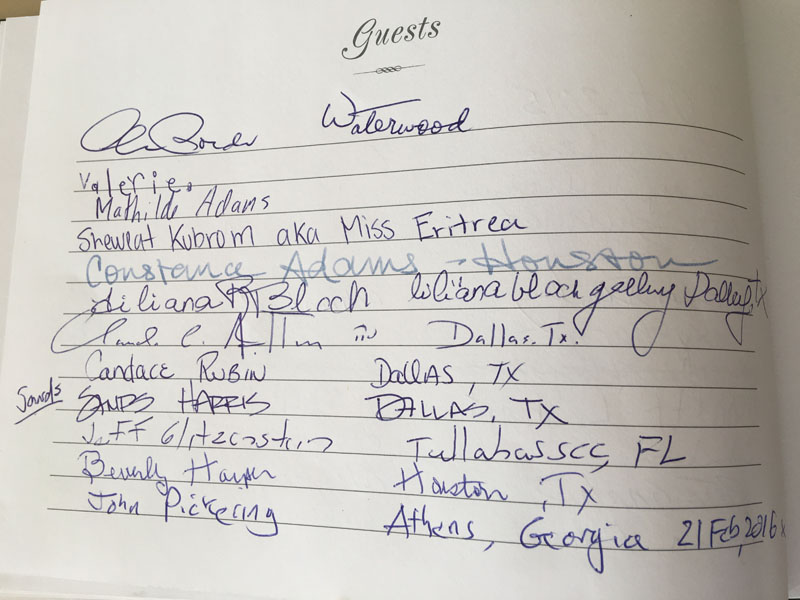 Guests
Waterwood
Valerie.
Mathilde Adams
Shewat Kubrom aka Miss Eritrea
Constance Adams - Houston
Liliana Bloch liliana bloch gallery Dallas, TX
Dallas. Tx.
Candace RUBIN DAllAS, TX
Sands SANDS HARRIS DALLAS, TX
Jeff Glitzenstein Tallahassee, FL
Beverly Harper Houston, Tx
John Pickering Athens, Georgia 21 Feb, 2016